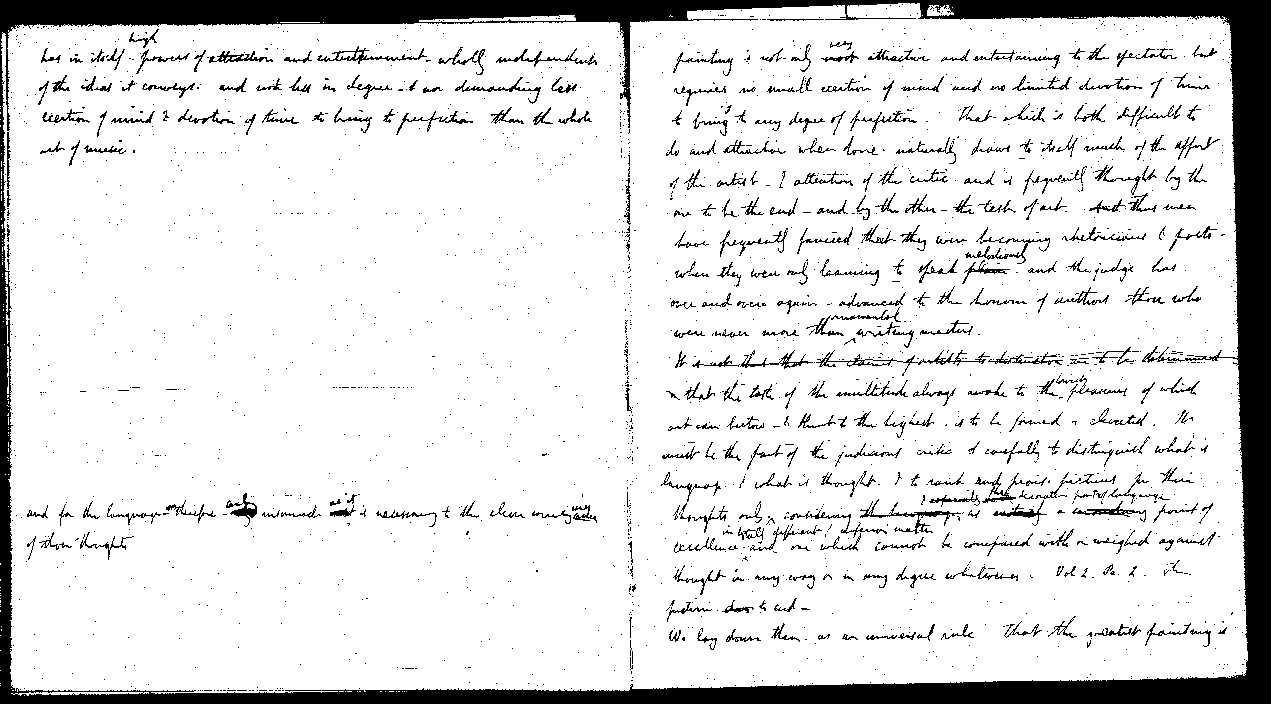 high
has in itself - powers of attraction and entertainment - wholly independent
of the ideas it conveys. and not less in degree - & nor demanding less
exertion of mind & devotion of time to bring to perfection than the whole
art of music.
and for the language only
insomuch as it is necessary to the clear conveying
of those thoughts
very
painting is not only most attractive and entertaining to the spectator but
requires no small exertion of mind and no limited devotion of time
to bring to any degree of perfection. That which is both difficult to
do and attractive when done. naturally draws to itself much of the effort
of the artist - & attention of the critic and is frequently thought by the
one to be the end - and by the other - the test of art. And thus men
have frequently fancied that they were becoming rhetoricians & poets -
melodiously
when they were only learning to speak plain. and the judge has
over and over again - advanced to the honour of authors those who
ornamental
were never more than writing masters.
It is not that that the claims of artists to distinction are to be determined
lower
that the taste of the multitude always awake to the pleasures of which
art can bestow - & blunt to the highest. is to be formed or elevated. It
must be the part of the judicious critic carefully to distinguish what is
language & what is thought. & to rank and praise pictures for their
thoughts only, considering the language as a point of
in totally different & inferior matter
excellence and one which cannot be compared with or weighed against
thought in any way or in any degree whatsoever. Vol 2. Pa. 2. The
picture to end -
We lay down then as an universal rule That the greatest painting is